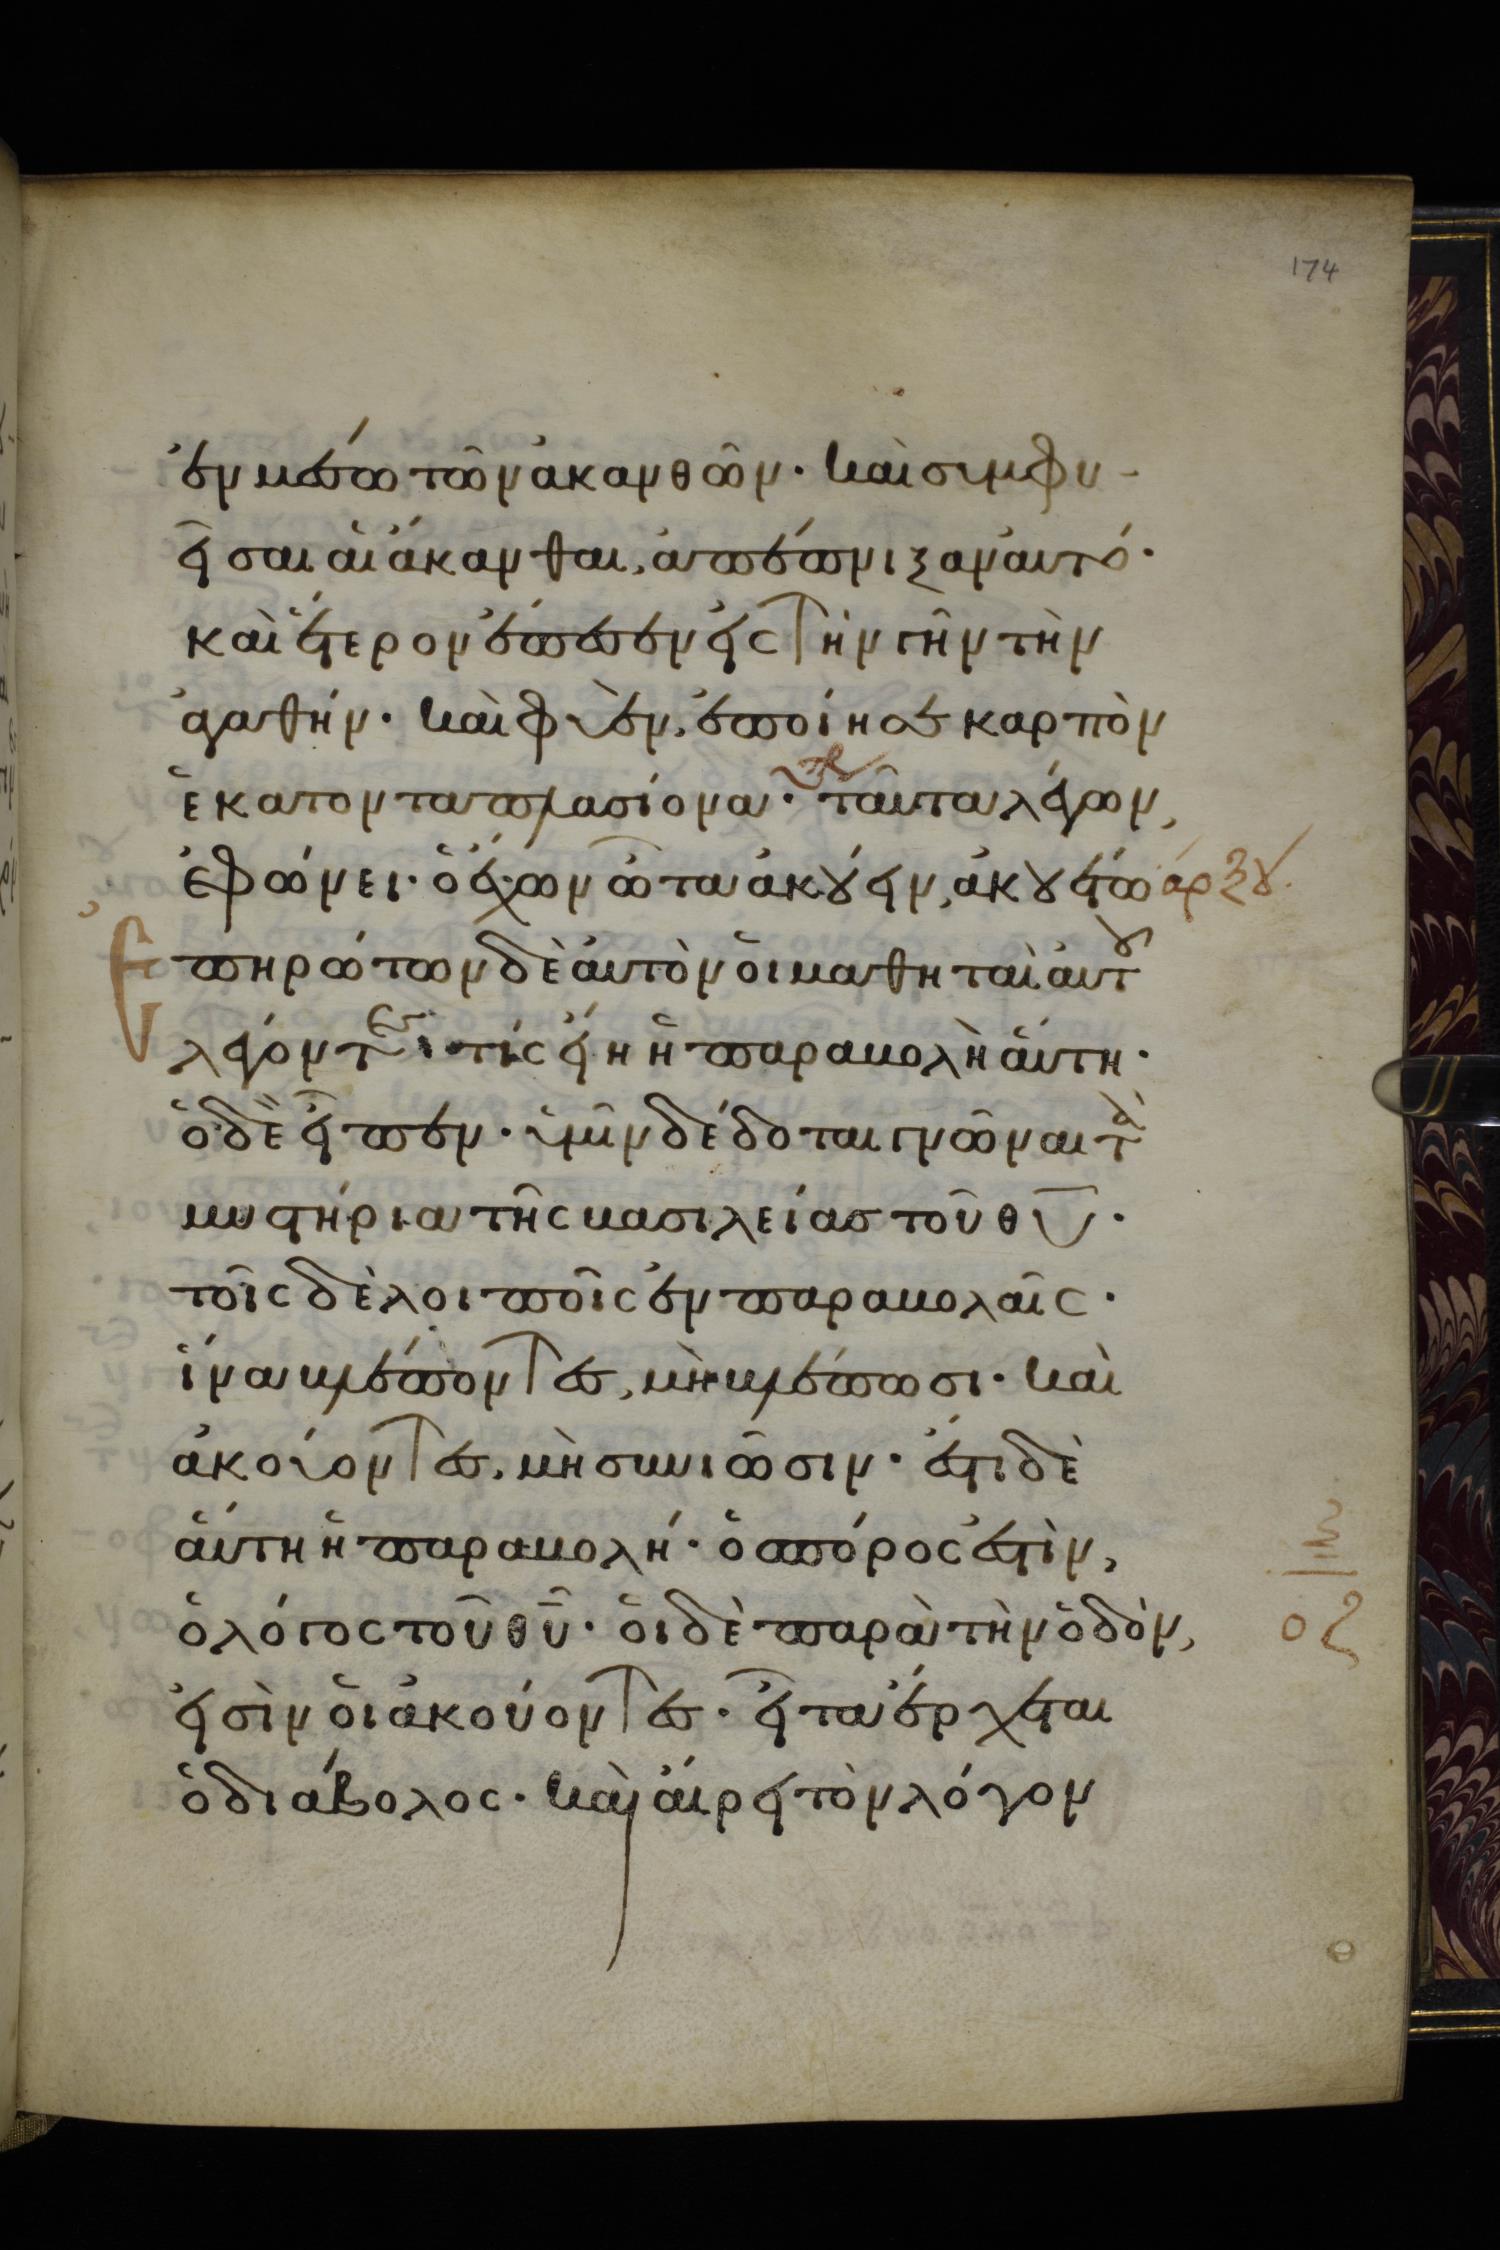 174
ἐν μέσω τῶν ἀκανθῶν· καὶ συμφυ-
εῖσαι αἱ ἄκανθαι, ἀπέπνιξαν αὐτό·
καὶ ἕτερον ἔπεσεν εἰς τὴν γῆν τὴν
ἀγαθήν· καὶ φυὲν, ἐποίησε καρπὸν
ἑκατονταπλασίονα· ταῦτα λέγων,
ἐφώνει· ὁ ἔχων ὦτα ἀκούειν, ἀκουέτω
Ἐπηρώτων δὲ αὐτὸν οἱ μαθηταὶ αὐτοῦ
λέγοντες· τίς εἴη ἡ παραβολὴ αὕτη·
ὁ δὲ εἶπεν· ὑμῖν δέδοται γνῶναι τὰ
μυστήρια τῆς βασιλείας τοῦ θυ·
τοῖς δὲ λοιποῖς ἐν παραβολαῖς·
ἵνα βλέποντες, μὴ βλέπωσι· καὶ
ἀκούοντες, μὴ συνιῶσιν· ἔστι δὲ
αὕτη ἡ παραβολή· ὁ σπόρος ἐστὶν,
ὁ λόγος τοῦ θυ· οἱ δὲ παρὰ τὴν ὁδὸν,
εἰσὶν οἱ ἀκούοντες· εἶτα ἔρχεται
ὁ διάβολος· καὶ αἴρει τὸν λόγον